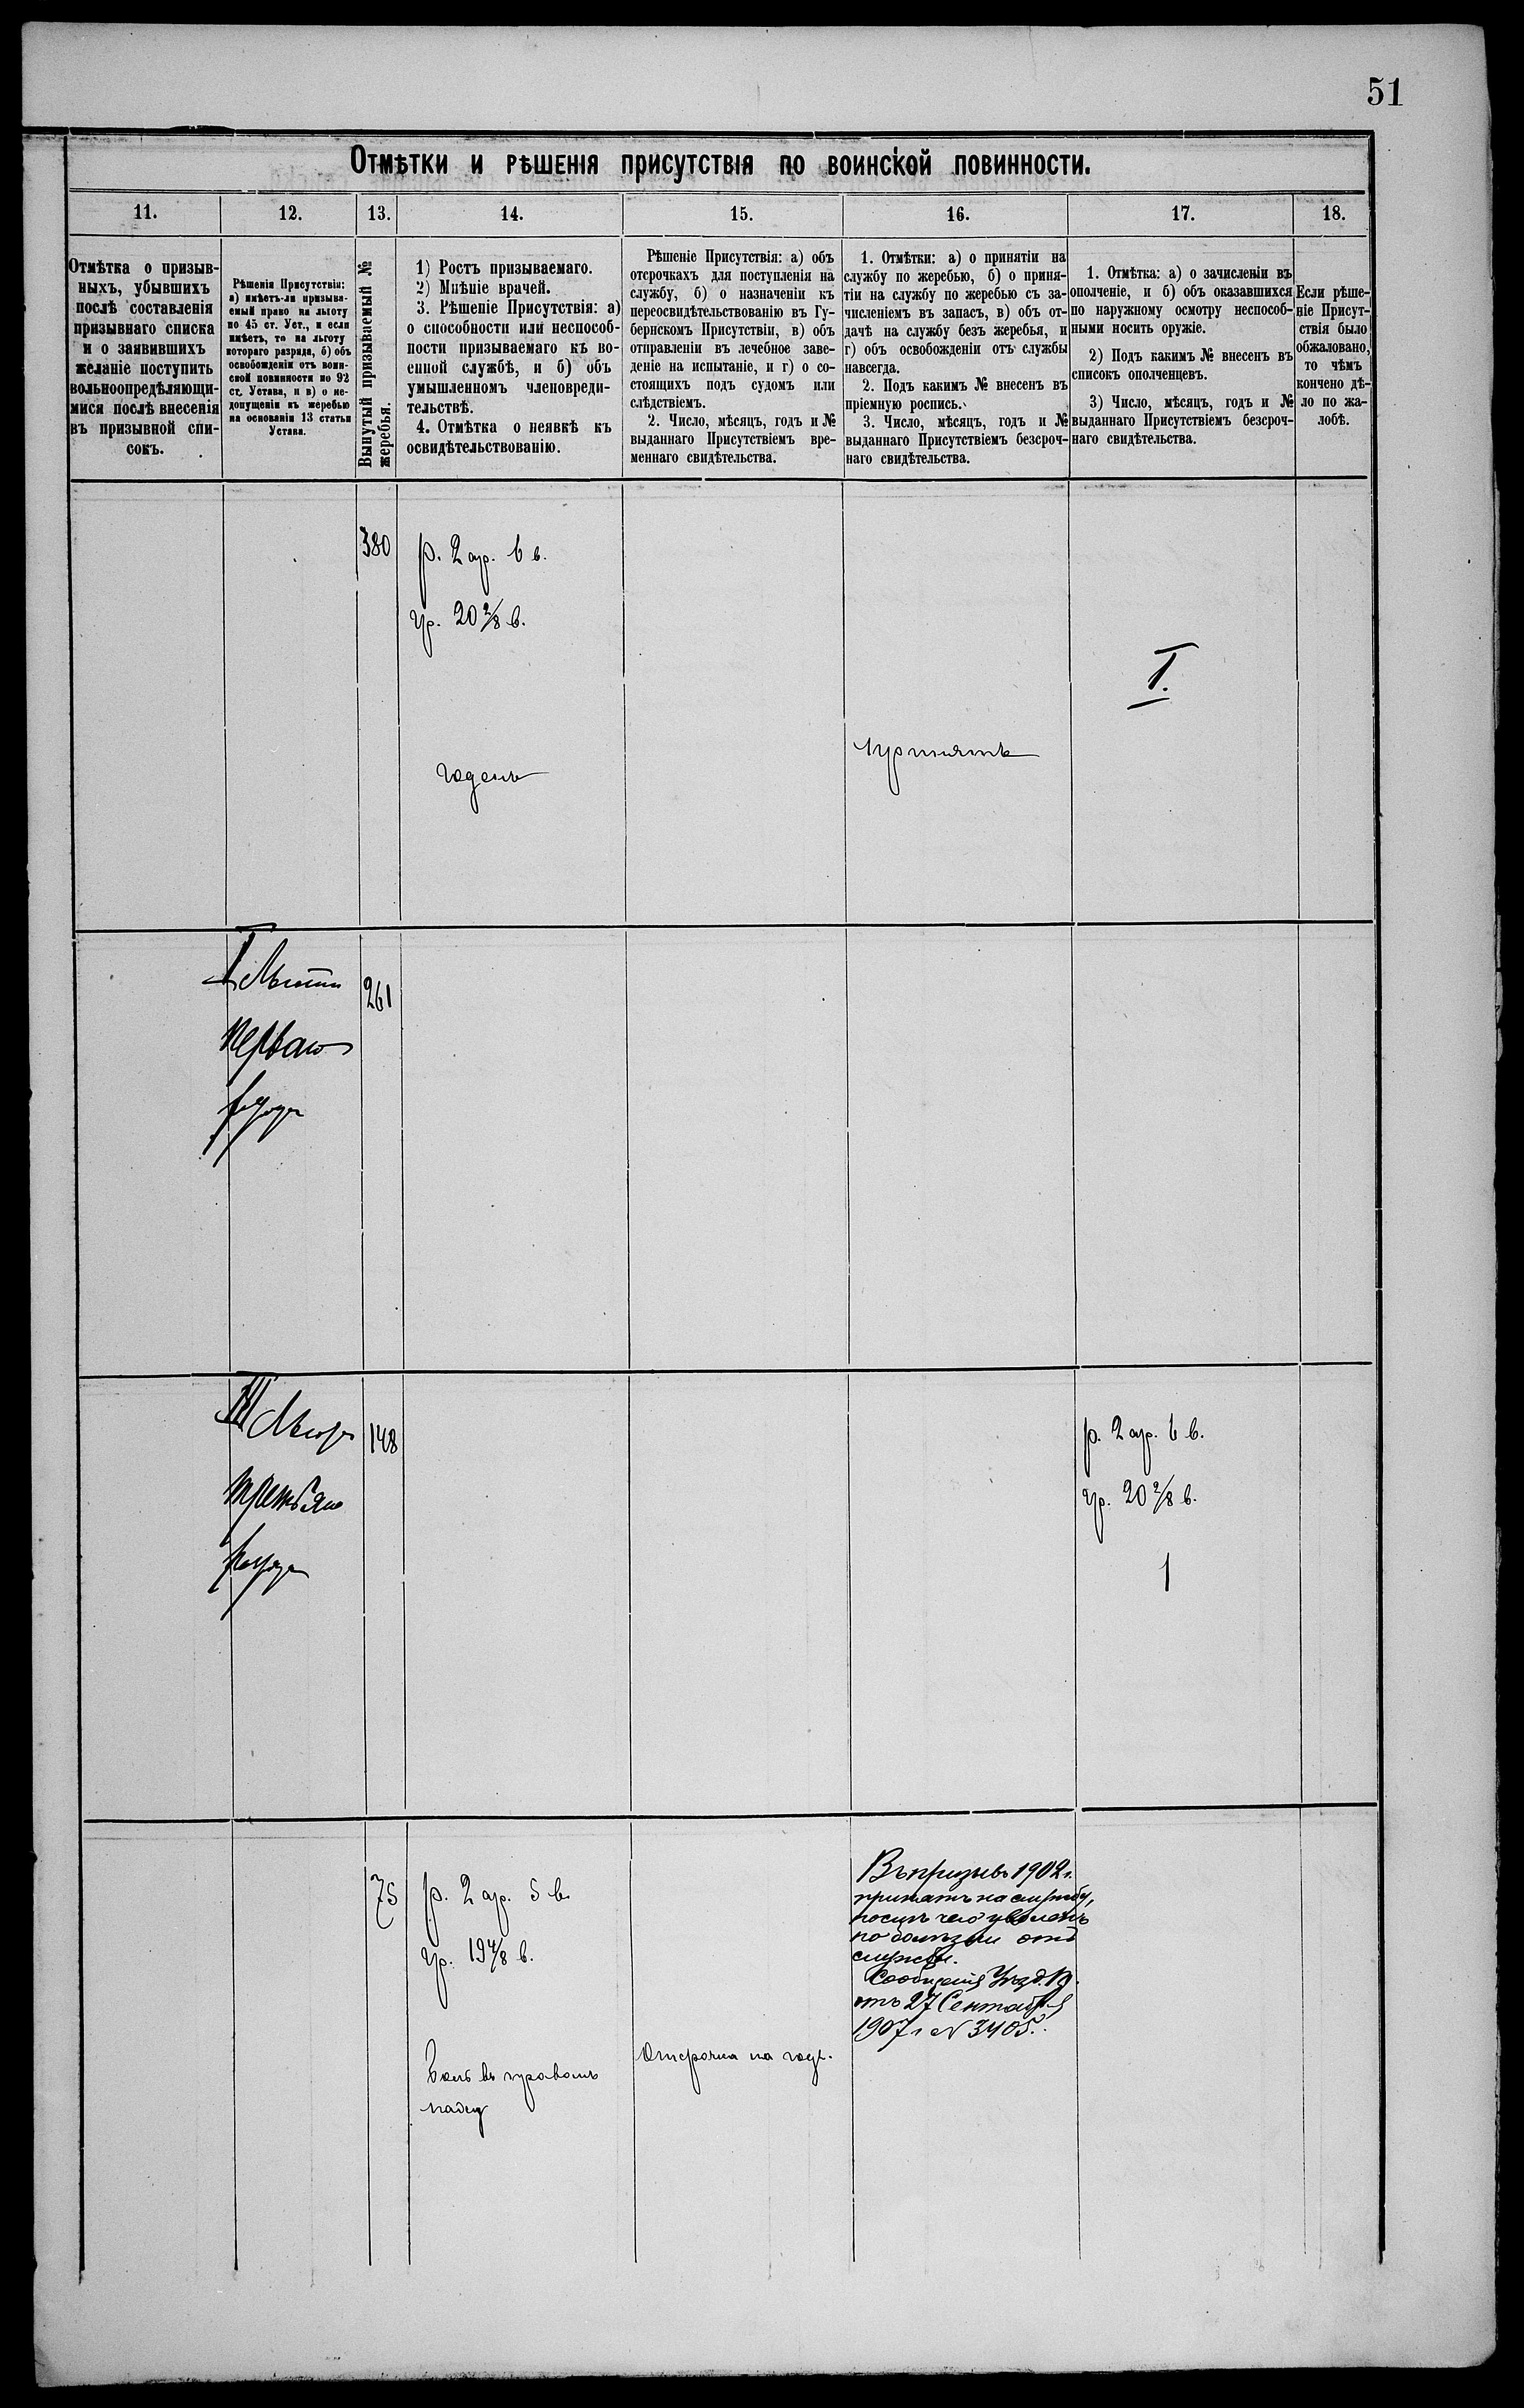 51
Отмѣтки и рѣшенія присутствія по воинской повинности.
11.
12.
13.
14.
15.
16.
17.
18.
Отмѣтка о призыв-
ныхъ, убывшихъ
послѣ составленія
призывнаго списка
и о заявившихъ
желаніе поступить
вольноопредѣляющи-
мися послѣ внесенія
въ призывной спи-
сокъ.
Рѣшенія Присутствія:
а) имѣетъ-ли призыва-
емый право на льготу
по 45 ст. Уст., и если
имѣетъ, то на льготу
котораго разряда, б) объ
освобожденіи отъ воин-
ской повинности по 92
ст. Устава, и в) о не-
допущеніи къ жеребью
на основаніи 13 статьи
Устава.
Вынутый призываемый №
жеребья.
1) Ростъ призываемаго.
2) Мнѣніе врачей.
3. Рѣшеніе Присутствія: а)
о способности или неспособ-
ности призываемаго къ во-
енной службѣ, и б) объ
умышленномъ членовреди-
тельствѣ.
4. Отмѣтка о неявкѣ къ
освидѣтельствованію.
Рѣшеніе Присутствія: а) объ
отсрочкахъ для поступленія на
службу, б) о назначеніи къ
переосвидѣтельствованію въ Гу-
бернскомъ Присутствіи, в) объ
отправленіи въ лечебное заве-
деніе на испытаніе, и г) о со-
стоящихъ подъ судомъ или
слѣдствіемъ.
2. Число, мѣсяцъ, годъ и №
выданнаго Присутствіемъ вре-
меннаго свидѣтельства.
1. Отмѣтки: а) о принятіи на
службу по жеребью, б) о приня-
тіи на службу по жеребью съ за-
численіемъ въ запасъ, в) объ от-
дачѣ на службу безъ жеребья, и
г) объ освобожденіи отъ службы
навсегда.
2. Подъ какимъ № внесенъ въ
пріемную роспись.
3. Число, мѣсяцъ, годъ и №
выданнаго Присутствіемъ безсроч-
наго свидѣтельства.
1. Отмѣтка: а) о зачисленіи въ
ополченіе, и б) объ оказавшихся
по наружному осмотру неспособ-
ными носить оружіе.
2) Подъ какимъ № внесенъ въ
списокъ ополченцевъ.
3) Число, мѣсяцъ, годъ и №
выданнаго Присутствіемъ безсроч-
наго свидѣтельства.
Если рѣше-
ніе Присут-
ствія было
обжаловано,
то чѣмъ
кончено дѣ-
ло по жа-
лобѣ.
380
р. 2 ар. 6 в.
гр. 20 2/8 в.
годенъ
принятъ
I.
I
261
перваго
III
148
третьяго
разряда
р. 2 ар. 6 в.
гр. 20 2/8 в.
1
75
р. 2 ар. 5 в.
гр. 19 4/8 в.
Боль въ правомъ
Отсрочка на годъ.
Въ призывъ 1902 г.
принятъ на службу,
послѣ чего уволенъ
по болѣзни отъ
службы.
от 27 Сентября
1907 г N 3405.